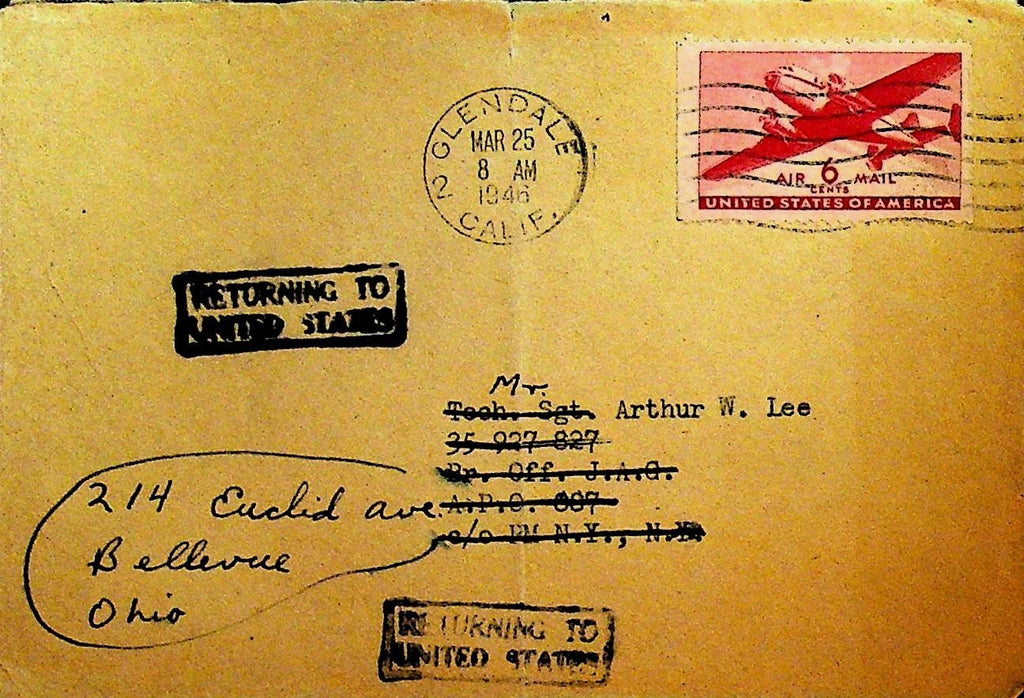 GLENDALE
MAR 25
8 AM
1946
2 CALIF.
AIR 6 MAIL
CENTS
UNITED STATES OF AMERICA
RETURNING TO
UNITED STATES
Mr.
Tech. Sgt. Arthur W. Lee
35 927 827
Br. Off. J.A.G.
A.P.O. 887
c/o PM N.Y., N.Y.
214 Euclid ave.
Bellevue
Ohio
RETURNING TO
UNITED STATES